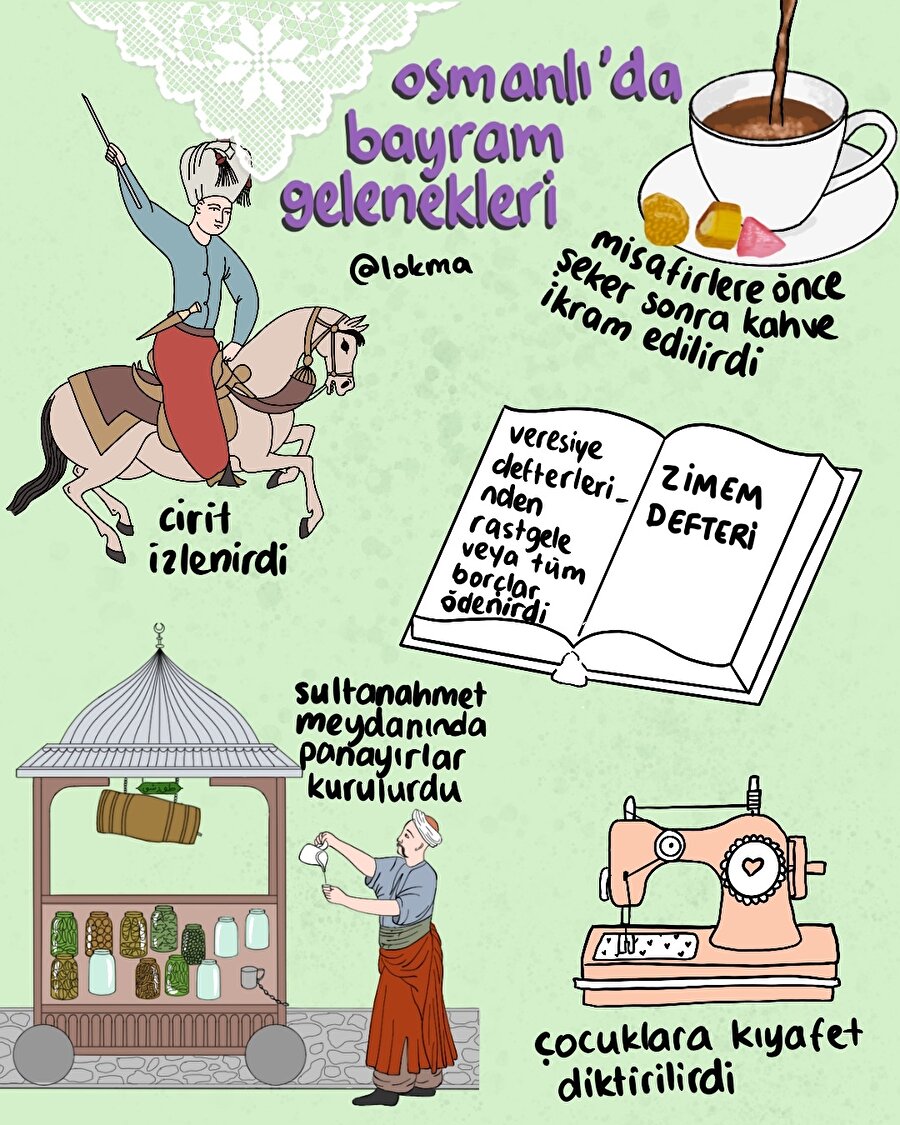 osmanlı'da
bayram
gelenekleri
@lokma
misafirlere önce
şeker sonra kahve
ikram edilirdi
cirit
izlenirdi
veresiye
defterleri-
nden
rastgele
veya tüm
borçlar
ödenirdi
ZİMEM
DEFTERİ
sultanahmet
meydanında
panayırlar
kurulurdu
çocuklara kıyafet
diktirilirdi